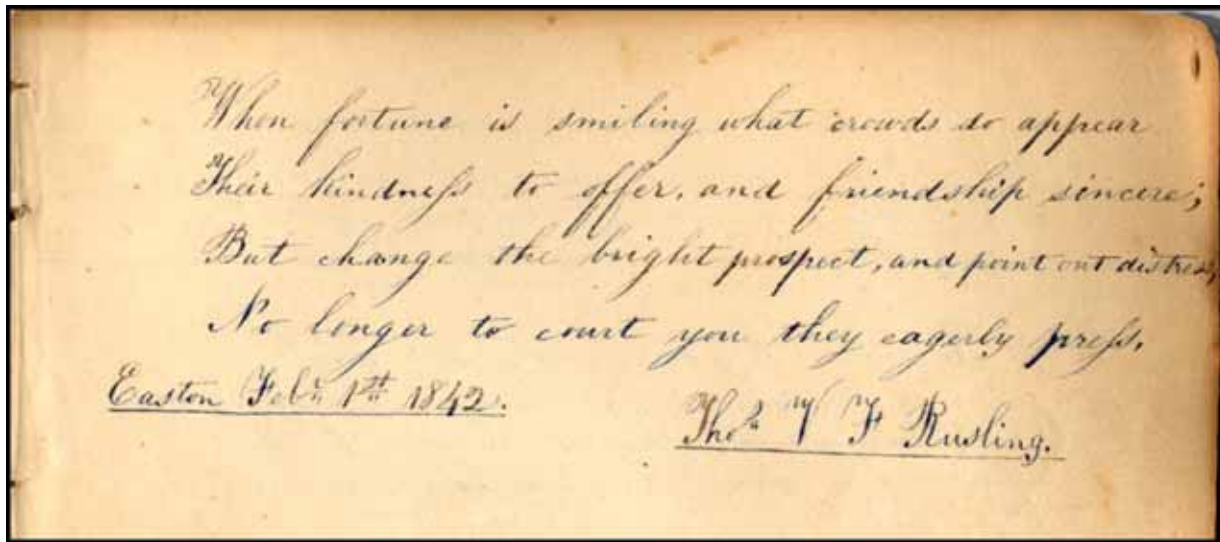 When fortune is smiling what crowds do appear
Their kindness to offer, and friendship sincere;
But change the bright prospect, and point out distress,
No longer to court you they eagerly press.
Easton Feby. 1st 1842.
Thos. V F Rusling.